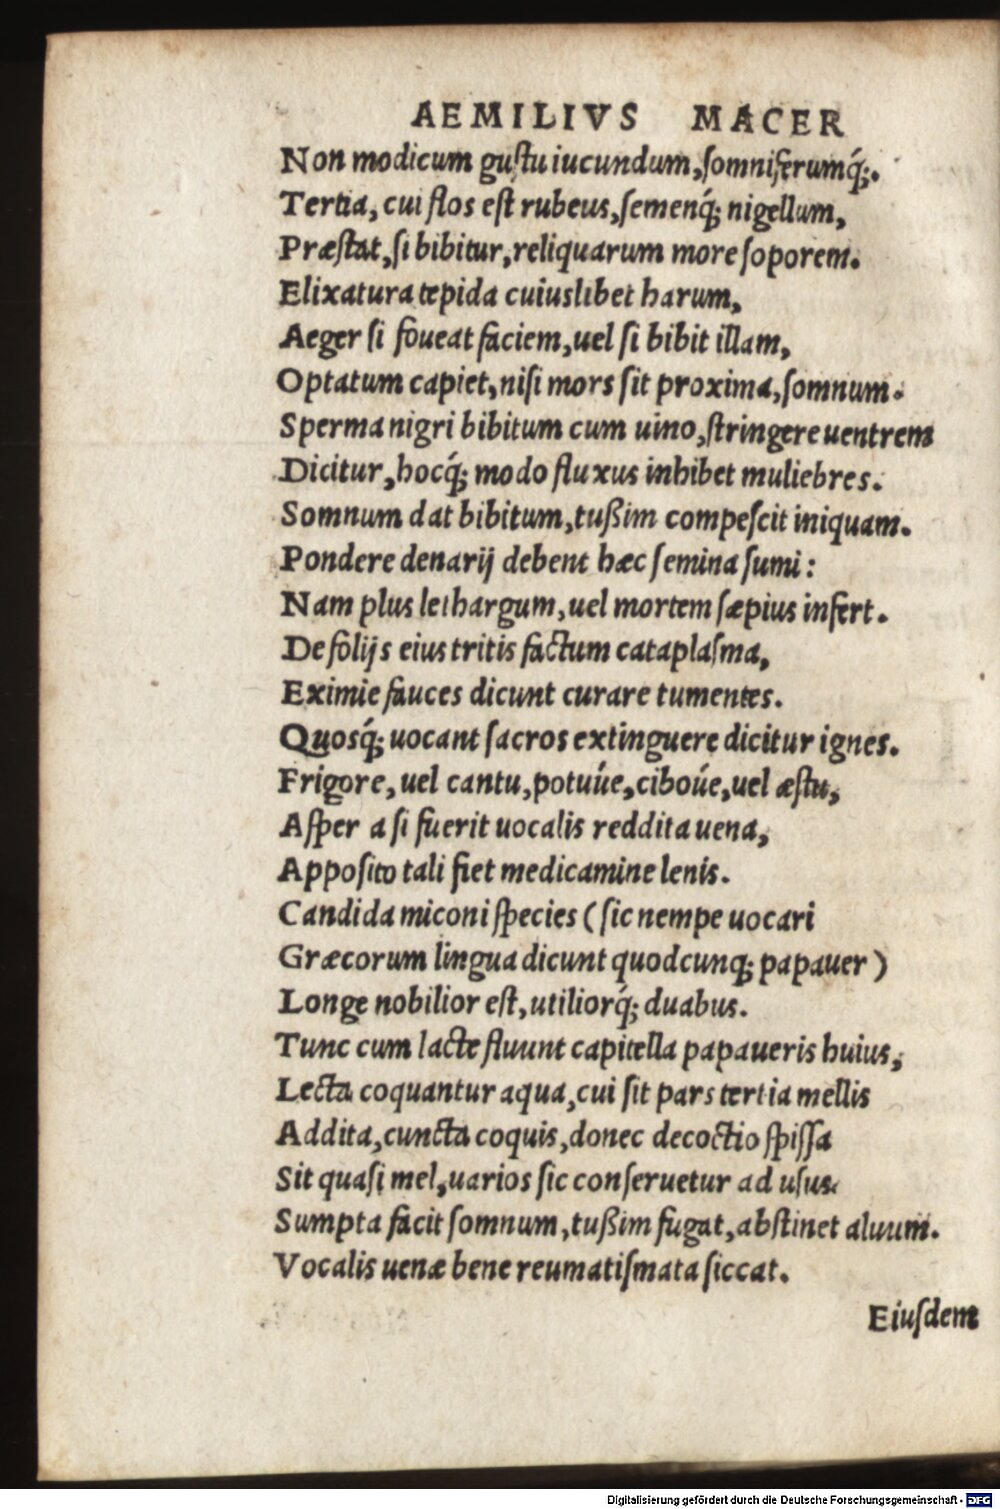 AEMILIVS MACER
Non modicum gustu iucundum, somniferumq́;.
Tertia, cui flos est rubeus, semenq́; nigellum,
Præstat, si bibitur, reliquarum more soporem.
Elixatura tepida cuiuslibet harum,
Aeger si foueat faciem, uel si bibit illam,
Optatum capiet, nisi mors sit proxima, somnum.
Sperma nigri bibitum cum uino, stringere uentrem
Dicitur, hocq́; modo fluxus inhibet muliebres.
Somnum dat bibitum, tußim compescit iniquam.
Pondere denarij debent hæc semina sumi:
Nam plus lethargum, uel mortem sæpius infert.
De folijs eius tritis factum cataplasma,
Eximie fauces dicunt curare tumentes.
Quosq́; uocant sacros extinguere dicitur ignes.
Frigore, uel cantu, potuúe, ciboúe, uel æstu,
Asper a si fuerit uocalis reddita uena,
Apposito tali fiet medicamine lenis.
Candida miconi species (sic nempe uocari
Græcorum lingua dicunt quodcunq; papauer)
Longe nobilior est, utiliorq́; duabus.
Tunc cum lacte fluunt capitella papaueris huius,
Lecta coquantur aqua, cui sit pars tertia mellis
Addita, cuncta coquis, donec decoctio spissa
Sit quasi mel, uarios sic conseruetur ad usus.
Sumpta facit somnum, tußim fugat, abstinet aluum.
Vocalis uenæ bene reumatismata siccat.
Eiusdem
Digitalisierung gefördert durch die Deutsche Forschungsgemeinschaft - DFG